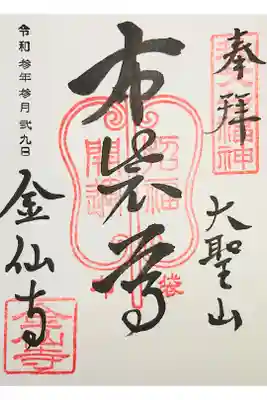 奉拝
大聖山
布袋尊
招福
開運
布袋
金仙寺
令和参年参月弐九日
金仙寺